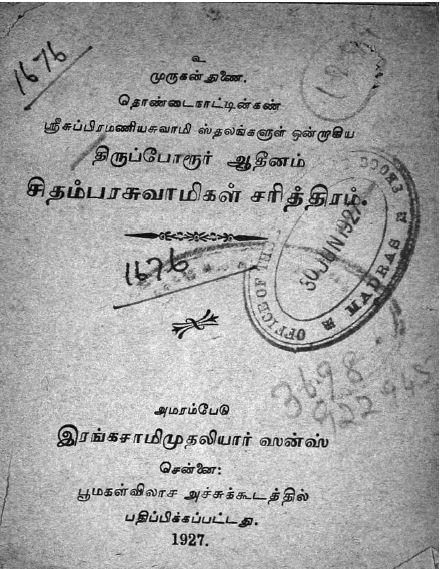 உ
1676
முருகன்துணை.
தொண்டைநாட்டின்கண்
ஸ்ரீசுப்பிரமணியசுவாமி ஸ்தலங்களுள் ஒன்றாகிய
திருப்போரூர் ஆதீனம்
சிதம்பரசுவாமிகள் சரித்திரம்.
1676
OFFICE OF THE
30 JUN 1927
MADRAS
3698
922 945
அமரம்பேடு
இரங்கசாமிமுதலியார் ஸன்ஸ்
சென்னை:
பூமகள்விலாச அச்சுக்கூடத்தில்
பதிப்பிக்கப்பட்டது.
1927.